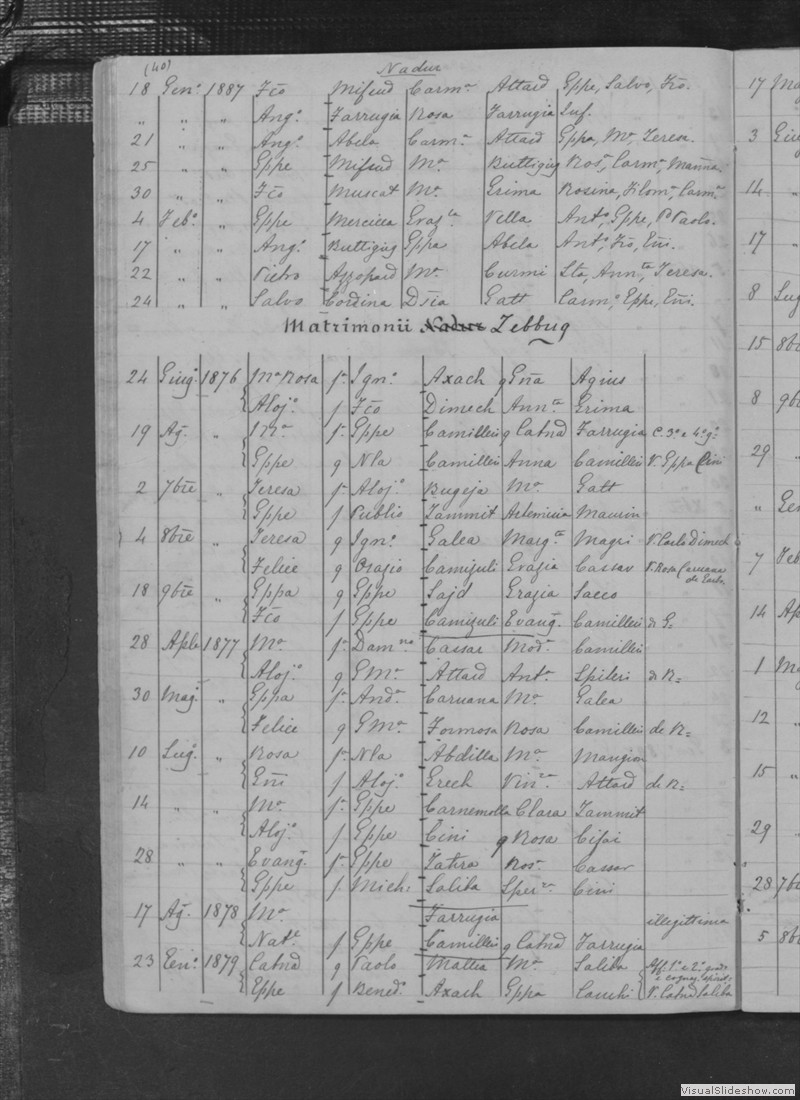 (40) Nadur
18 Genº 1887 Fcō Mifsud Carmª Attard Gppe, Salvo, Fco.
„ „ „ Angº Farrugia Rosa Farrugia
21 „ „ Angº Abela Carmª Attard Gppa, Mª, Teresa.
25 „ „ Gppe Mifsud Mª Buttigieg Rosª, Carmª
30 „ „ Fcō Muscat Mª Grima Rosina, Filomª, Carmª
4 Febº „ Gppe Mercieca Grazia Vella Antº, Gppe, Paolo.
17 „ „ Angº Buttigieg Gppa Abela Antº, Fcō, Eñi.
22 „ „ Pietro Azzopard Mª Curmi Sta, Annᵗᵃ, Teresa.
24 „ „ Salvo Cordina Dcīa Gatt Carmº, Gppe, Eñi.
Matrimonii Nadur Zebbug
24 Giugº 1876 Mª Rosa fª Ignº Axach q Gñia Agius
Alojº f Fcō Dimech Annᵗᵃ Grima
19 Ag. „ Mª fª Gppe Camilleri q Catnd Farrugia C. 3º e 4º gº
Gppe q Nla Camilleri Anna Camilleri V. Gppa Cini
2 7bre „ Teresa fª Alojº Bugeja Mª Gatt
Gppe f Publio Zammit Artemisia Maurin
4 8bre „ Teresa q Ignº Galea Margᵗᵃ Magri V. Carlo Dimech
Felice q Orazio Camizuli Grazia Cassar V. Rosa Caruana
18 9bre „ Gppa q Gppe Sajd Grazia Sacco
Fcō f Gppe Camizuli Evang. Camilleri di G=
28 Aple 1877 Mª fª Damⁿᵒ Cassar Modª Camilleri
Alojº q GMª Attard Antª Spiteri di R=
30 Magº „ Gppa fª Andª Caruana Mª Galea
Felice q GMª Formosa Rosa Camilleri de R=
10 Lugº „ Rosa fª Nla Abdilla Mª Mangion
Eñi f Alojº Grech Vinᶻᵃ Attard de R=
14 „ „ Mª fª Gppe Carnemolla Clara Zammit
Alojº f Gppe Cini q Rosa Cifai
28 „ „ Evang. fª Gppe Zahra Rosª Cassar
Gppe f Mich. Saliba Sperᶻᵃ Cini
17 Ag. 1878 Mª Farrugia illegittima
Natᵉ f Gppe Camilleri q Catnd Farrugia
23 Genº 1879 Catnd q Paolo Mallia Mª Saliba Aff. 1º e 2º grado
e cognaz. spirit.
Gppe f Benedº Axach Gppa Cauchi V. Catnd Saliba
17 Ma
3 Giu
14 „
17 „
8 Lug
15 8b
8 9b
29 „
„ Gen
7 Feb
14 Ap
1 Ma
12 „
15 „
29 „
28 7b
5 8b
VisualSlideshow.com